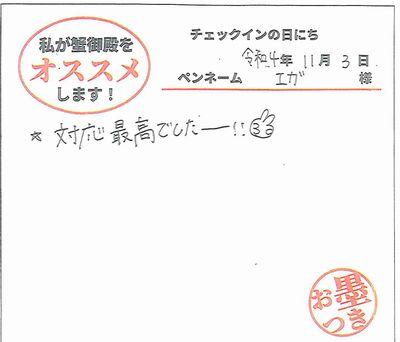 私が蟹御殿を
オススメ
します！
チェックインの日にち
令和4年 11月 3日
ペンネーム エガ 様
☆ 対応最高でしたーー!!
お墨
つき